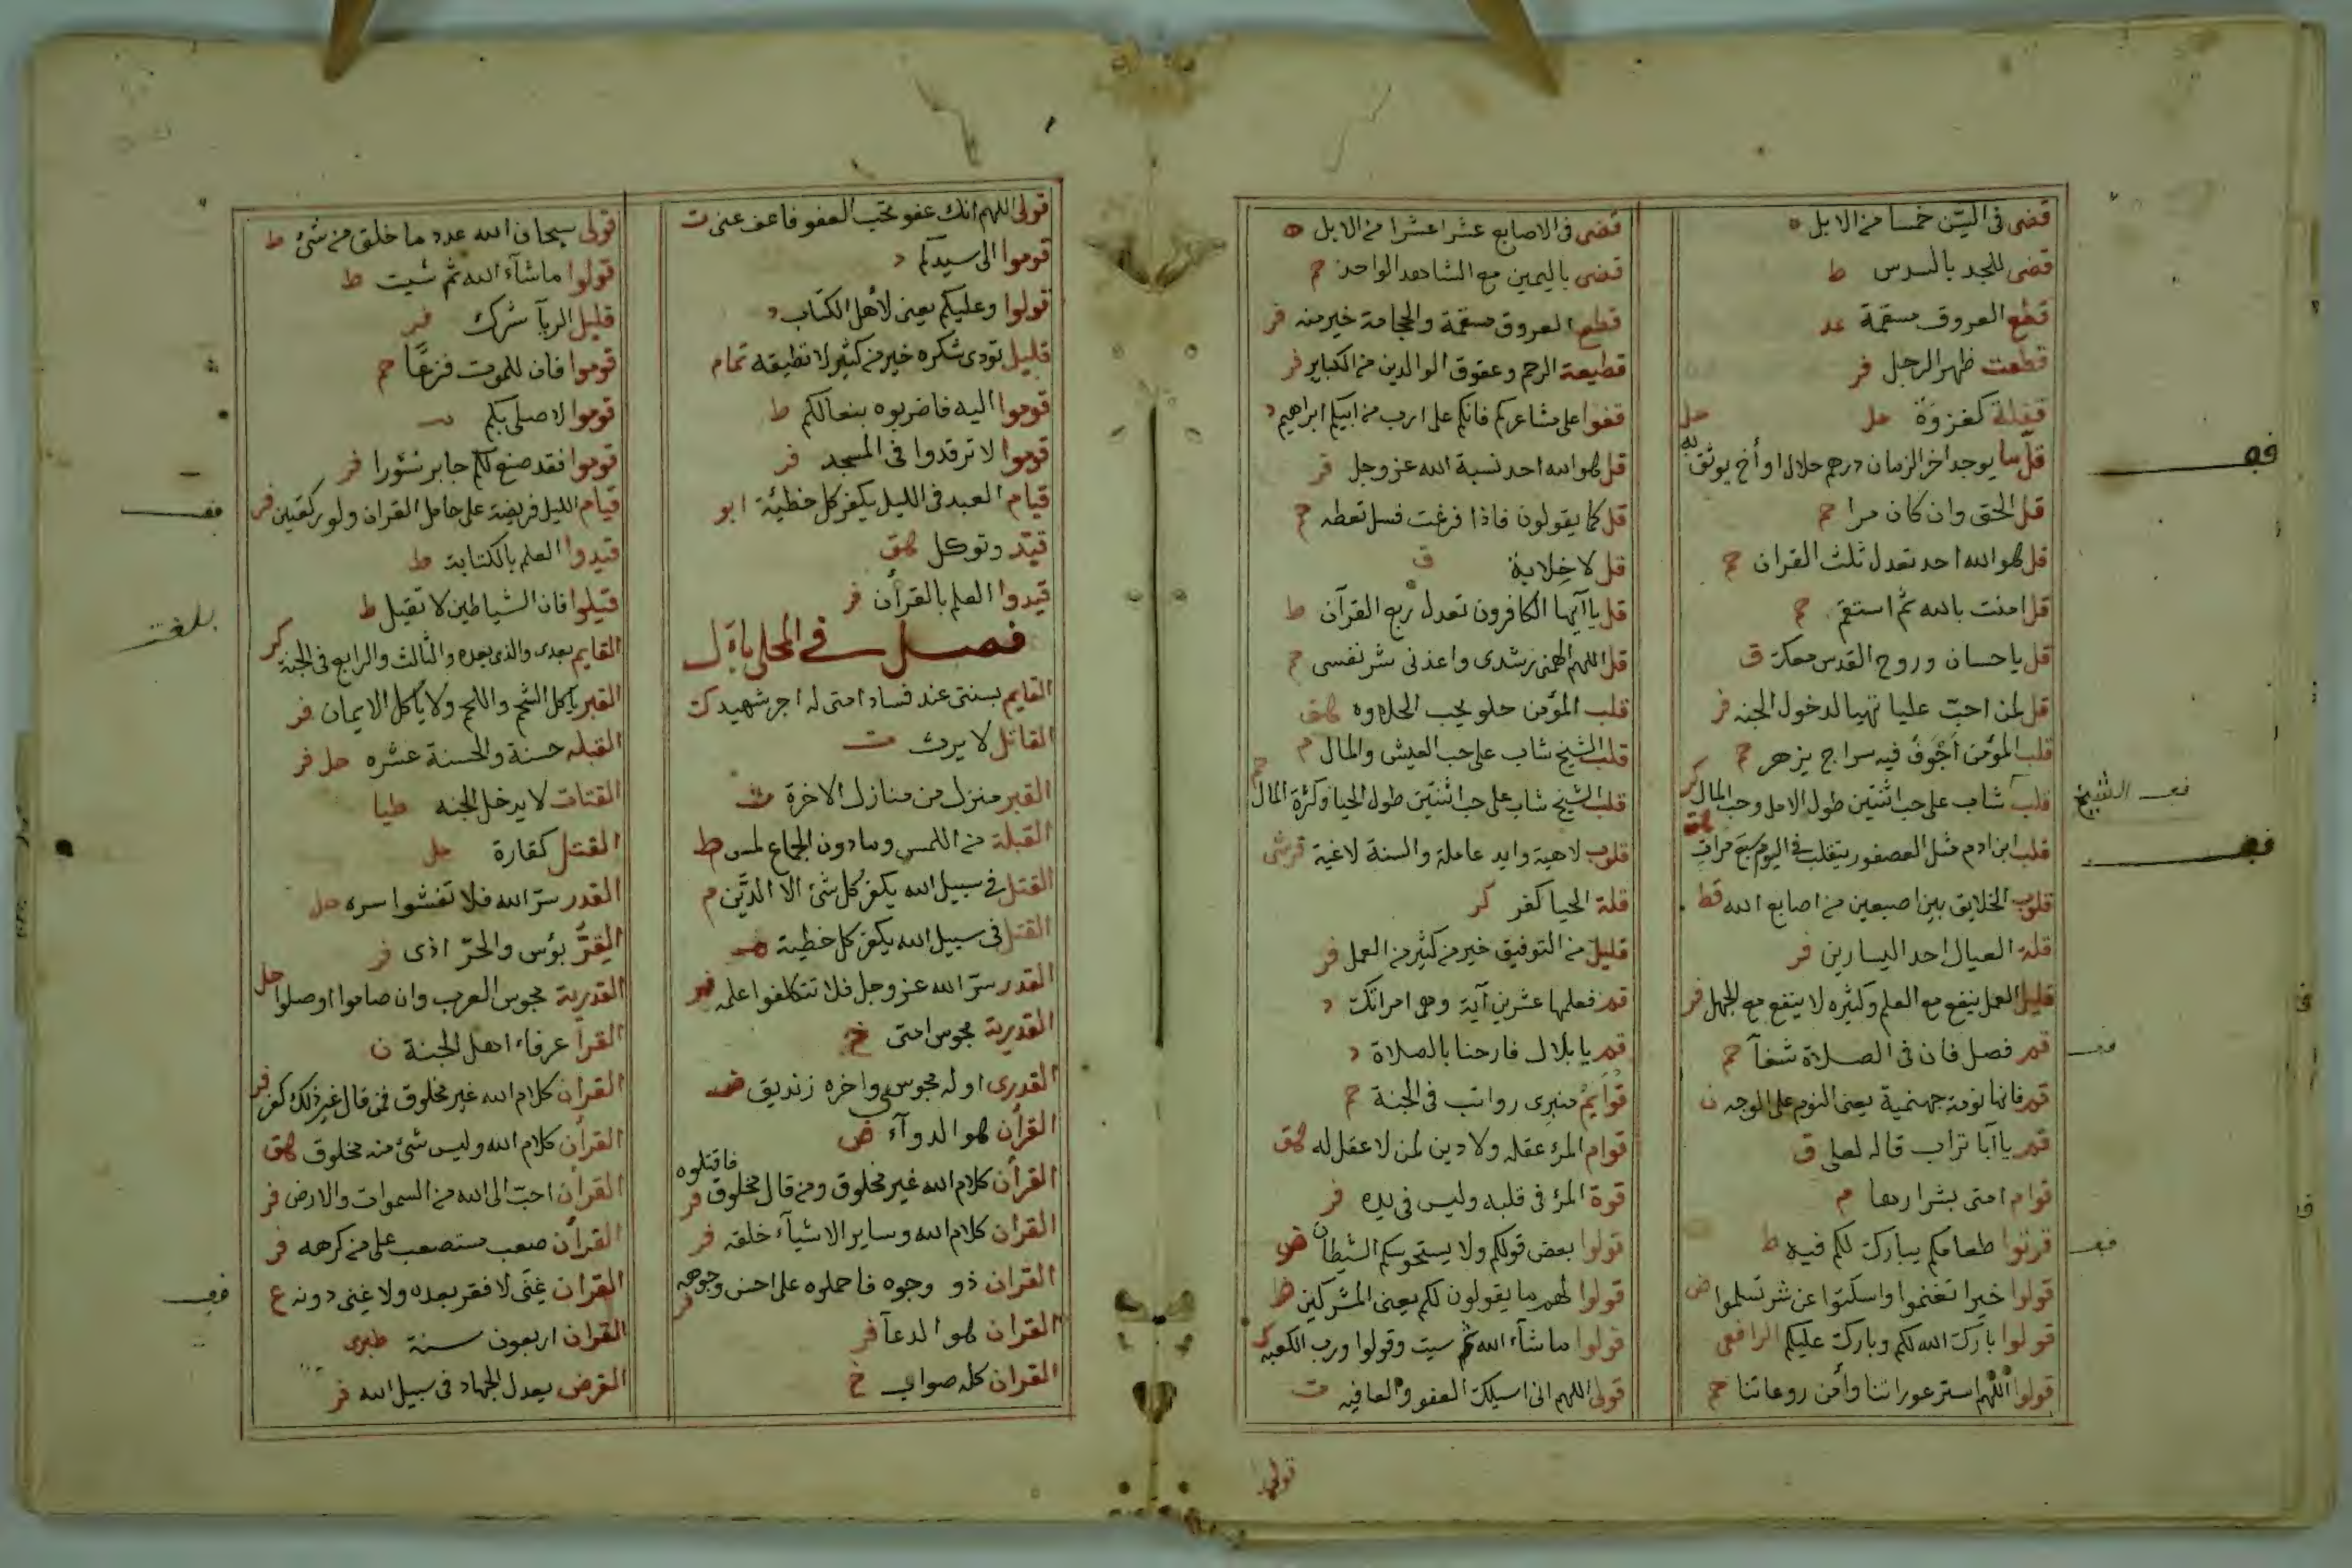 قضى فى السّن خمسا من الابل ه
قضى للجد بالسدس ط
قطع العروق مسقمة عد
قطعت ظهر الرجل فر
قفلة كغزوة حل
قلّ ما يوجد اخر الزمان درهم حلال او أخ يوثق به حل
قل الحق وان كان مرا حم
قل هو الله احد تعدل ثلث القران حم
قل امنت بالله ثم استقم حم
قل يا حسان وروح القدس معك ق
قل لمن احبّ عليا تهيا لدخول الجنه فر
قلب المؤمن أجوف فيه سراج يزهر حم
قلب شاب على حب اثنتين طول الامل وحب المال كر
قلب ابن ادم مثل العصفور يتقلب فى اليوم سبع مرات هق
قلوب الخلايق بين اصبعين من اصابع الله قط
قلة العيال احد اليسارين فر
قليل العمل ينفع مع العلم وكثيره لا ينفع مع الجهل فر
قم فصل فان فى الصلاة شفآ حم
قم فانها نومة جهنمية يعنى النوم على الوجه ن
قم يا أبا تراب قاله لعلى ق
قوام امتى بشرارها م
قوتوا طعامكم يبارك لكم فيه ط
قولوا خيرا تغنموا واسكتوا عن شر تسلموا ض
قولوا بارك الله لكم وبارك عليكم الرافعى
قولوا اللهم استر عوراتنا وأمن روعاتنا حم
فعـ
فعـ الشيخ
فعـ
فعـ
فعـ
قضى فى الاصابع عشرا عشرا من الابل ه
قضى باليمين مع الشاهد الواحد حم
قطع العروق مسقمة والحجامة خير منه فر
قطيعة الرحم وعقوق الوالدين من الكباير فر
قفوا على مشاعركم فانكم على ارث من ابيكم ابراهيم د
قل هو الله احد نسبة الله عز وجل فر
قل كما يقولون فاذا فرغت فسل تعطه حم
قل لا خلابة ق
قل يا أيها الكافرون تعدل ربع القرآن ط
قل اللهم الهمنى رشدى واعذنى شر نفسى حم
قلب المؤمن حلو يحب الحلاوه هق
قلب الشيخ شاب على حب العيش والمال م
قلب الشيخ شاب على حب اثنتين طول الحيا وكثرة المال حم
قلوب لاهية وايد عاملة والسنة لاغية قرشى
قلة الحيا كفر كر
قليل من التوفيق خير من كثير من العمل فر
قم فعلمها عشرين آية وهى امراتك د
قم يا بلال فارحنا بالصلاة د
قوايم منبرى رواتب فى الجنة حم
قوام المرٔ عقله ولا دين لمن لا عقل له هق
قوة المرٔ فى قلبه وليس فى يده فر
قولوا بعض قولكم ولا يستحوسكم الشيطان ض
قولوا لهم ما يقولون لكم يعنى المشركين ط
قولوا ما شآء الله ثم سيت وقولوا ورب الكعبه ك
قولى اللهم انى اسيلك العفو والعافيه ت
قولى
قولى اللهم انك عفو تحب العفو فاعف عنى ت
قوموا الى سيدكم د
قولوا وعليكم يعنى لأهل الكتاب د
قليل تودى شكره خير من كثير لا تطيقه تمام
قوموا اليه فاضربوه بنعالكم ط
قوموا لا ترقدوا فى المسجد فر
قيام العبد فى الليل يكفر كل خطيئة ابو
قيّد وتوكل هق
قيدوا العلم بالقرآن فر
فصل فى المحلى بأل
القايم بسنتى عند فساد امتى له اجر شهيد ك
القاتل لا يرث ت
القبر منزل من منازل الاخرة ت
القبلة من اللمس وما دون الجماع لمس ط
القتل فى سبيل الله يكفر كل شئ الا الدّين م
القتل فى سبيل الله يكفر كل خطية ت
القدر سرّ الله عز وجل فلا تتكلفوا علمه فر
القدرية مجوس امتى خ
القدرى اوله مجوسى واخره زنديق ض
القرأن هو الدوآء ض
القرأن كلام الله غير مخلوق ومن قال مخلوق فاقتلوه فر
القران كلام الله وساير الاشيآء خلقه فر
القران ذو وجوه فاحملوه على احسن وجوهه فر
القران هو الدعآ فر
القران كله صواب خ
قولى سبحان الله عدد ما خلق من شئ ط
قولوا ما شآء الله ثم شيت ط
قليل الريآ شرك فر
قوموا فان للموت فزعًا حم
قوموا لاصلى بكم
قوموا فقد صنع لكم جابر سئورا فر
قيام الليل فريضة على حامل القران ولو ركعتين فر
قيدوا العلم بالكتابة ط
قيلوا فان الشياطين لا تقيل ط
القايم بعدى والذى بعده والثالث والرابع فى الجنة كر
القبر يأكل الشحم واللحم ولا يأكل الايمان فر
القبله حسنة والحسنة عشره حل فر
القتات لا يدخل الجنه طيا
القتل كفارة حل
القدر سرّ الله فلا تفشوا سره حل
القرّ بؤس والحرّ اذى فر
القدرية مجوس العرب وان صاموا او صلوا حل
القرأ عرفاء اهل الجنة ن
القران كلام الله غير مخلوق فمن قال غير ذلك كفر فر
القرأن كلام الله وليس شئ منه مخلوق هق
القرأن احبّ الى الله من السموات والارض فر
القرأن صعب مستصعب على من كرهه فر
القران غِنًى لا فقر بعده ولا غنى دونه ع
القران اربعون سنة طبرى
القرض يعدل الجهاد فى سبيل الله فر
فعـ
بلغت
فعـ